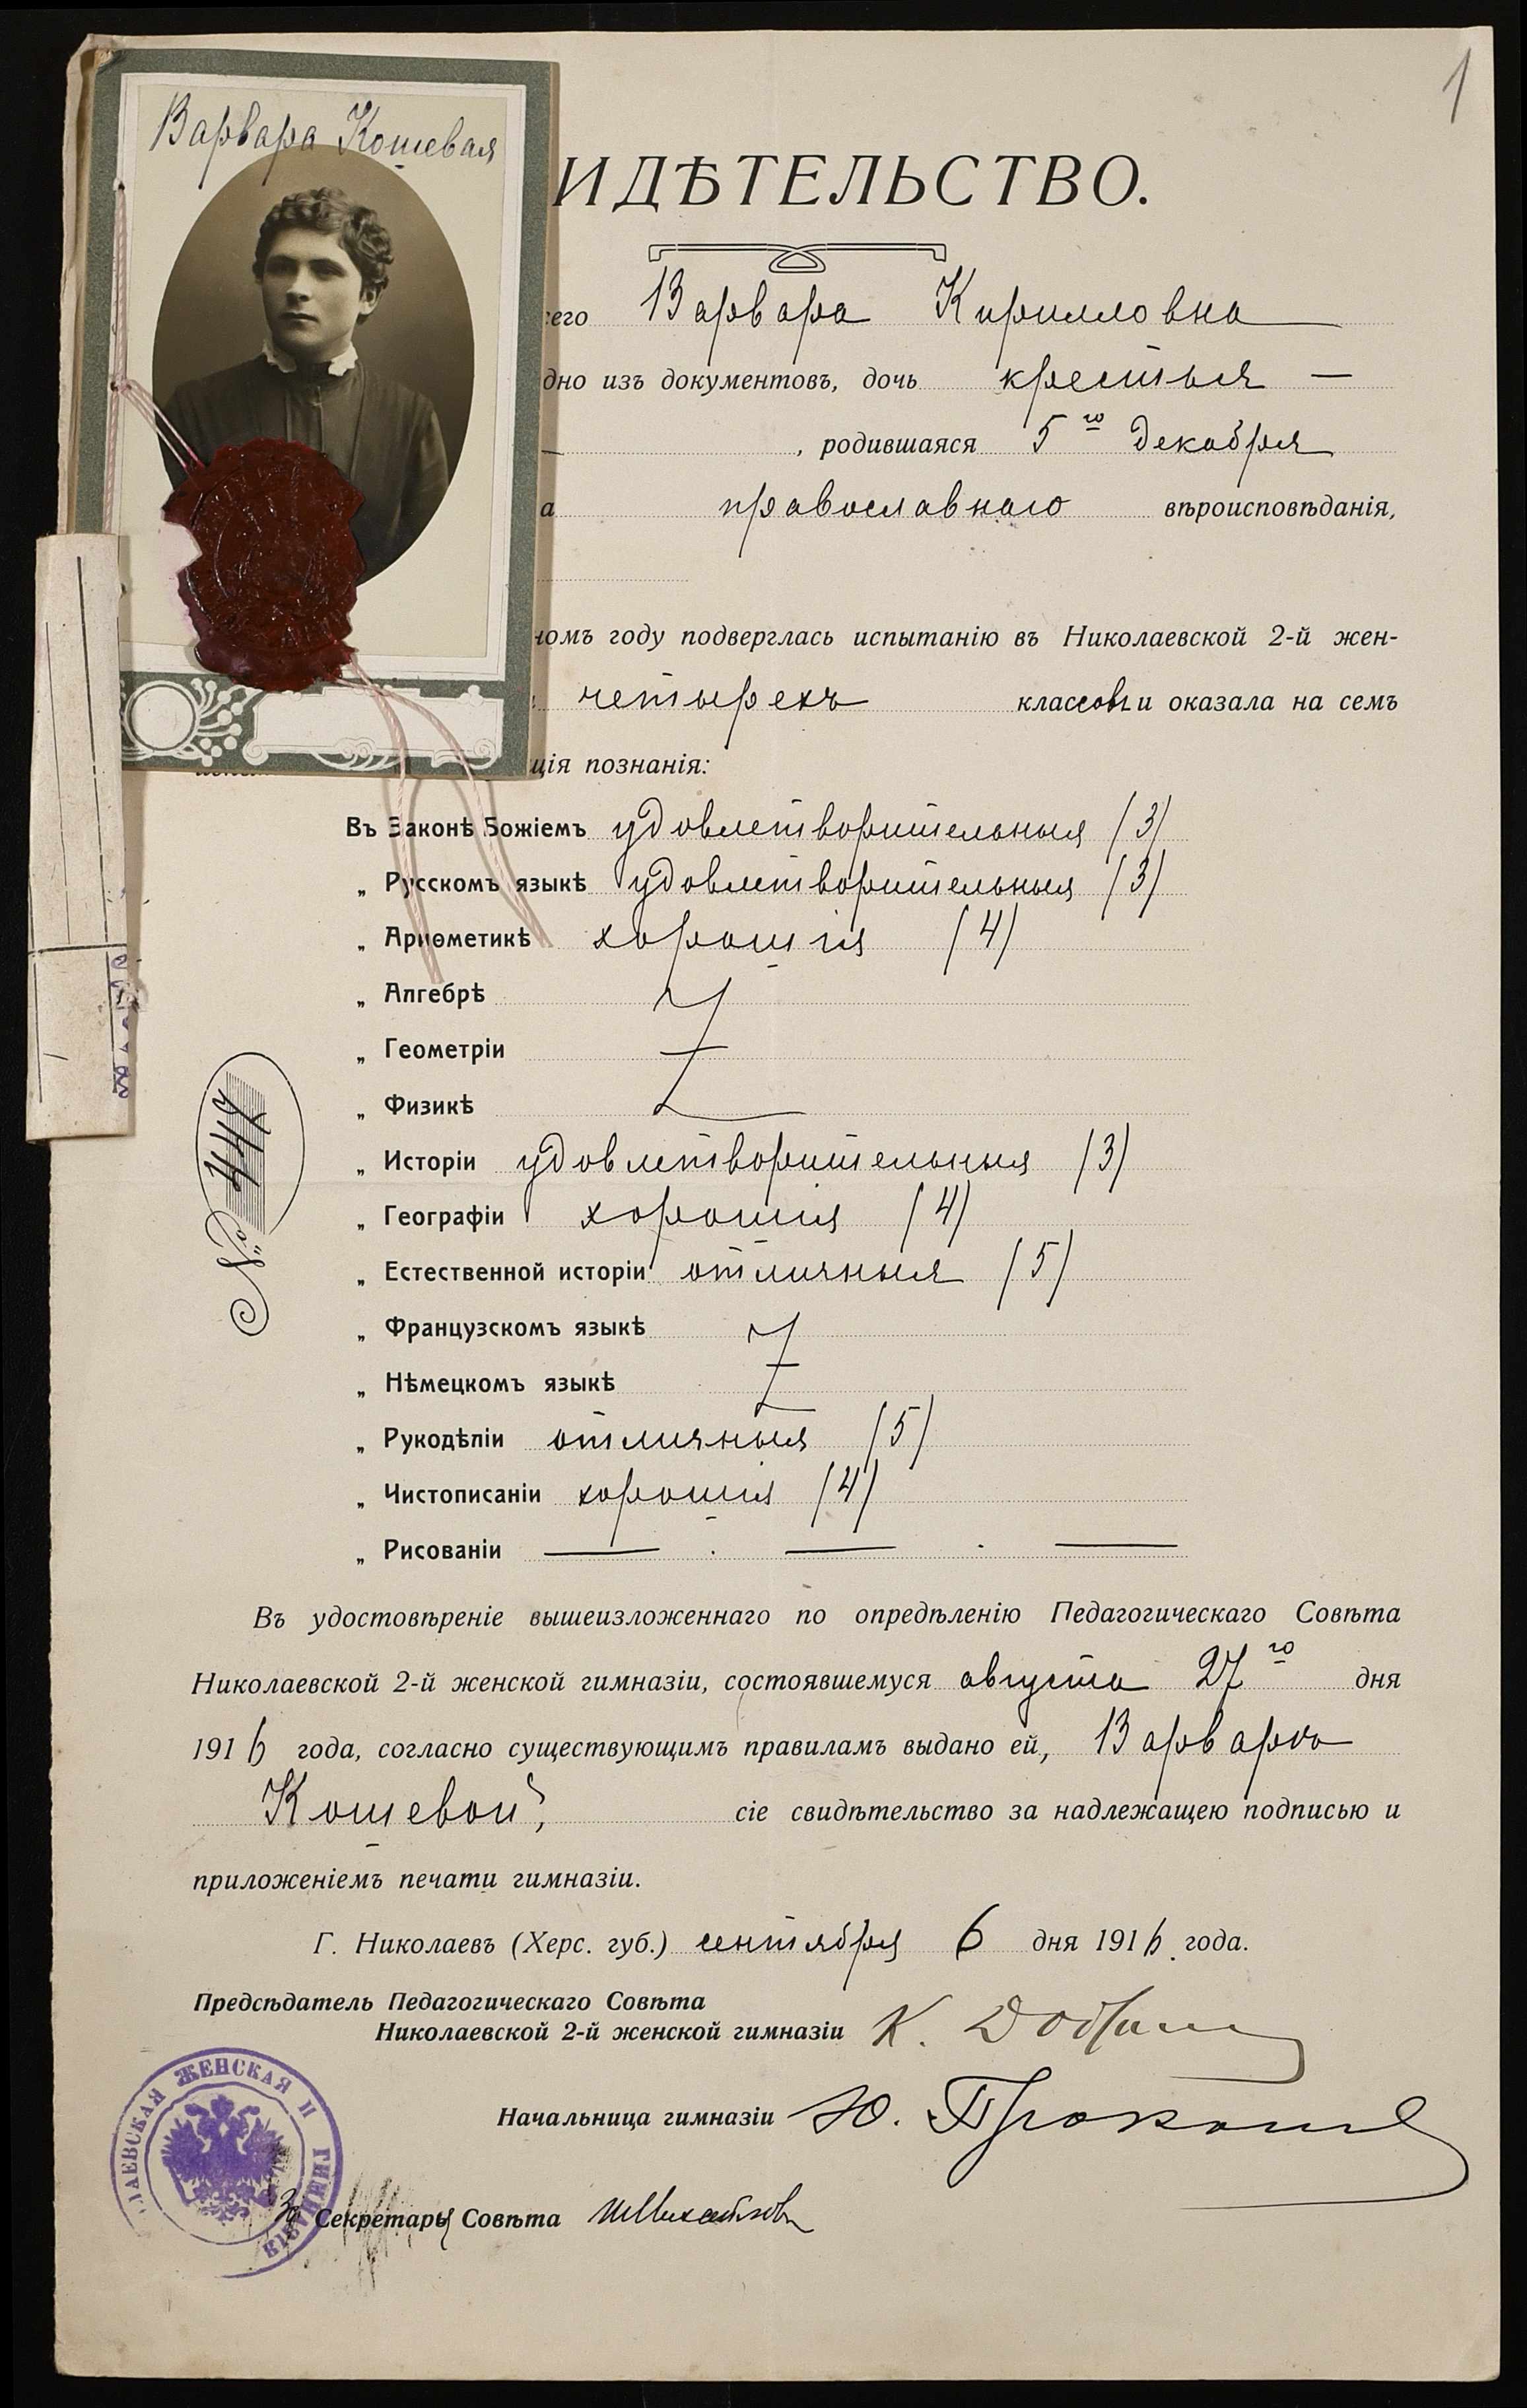 1
Варвара Кошевая
ИДѢТЕЛЬСТВО.
его Варвара Кирилловна
дно изъ документовъ, дочь крестья —
— , родившаяся 5го Декабря
а православнаго вѣроисповѣданія,
номъ году подверглась испытанію въ Николаевской 2-й жен-
четырехъ классовъ и оказала на семъ
ція познанія:
Въ Законѣ Божіемъ удовлетворительныя (3)
„ Русскомъ языкѣ удовлетворительныя (3)
„ Ариѳметикѣ хорошія (4)
„ Алгебрѣ
„ Геометріи
„ Физикѣ
„ Исторіи удовлетворительныя (3)
„ Географіи хорошія (4)
„ Естественной исторіи отличныя (5)
„ Французскомъ языкѣ
„ Нѣмецкомъ языкѣ
„ Рукодѣліи отличныя (5)
„ Чистописаніи хорошія (4)
„ Рисованіи — . — . —
№ 447
Въ удостовѣреніе вышеизложеннаго по опредѣленію Педагогическаго Совѣта
Николаевской 2-й женской гимназіи, состоявшемуся августа 27го дня
1916 года, согласно существующимъ правиламъ выдано ей, Варварѣ
Кошевой, сіе свидѣтельство за надлежащею подписью и
приложеніемъ печати гимназіи.
Г. Николаевъ (Херс. губ.) сентября 6 дня 1916 года.
Предсѣдатель Педагогическаго Совѣта
Николаевской 2-й женской гимназіи К.
Начальница гимназіи Ю.
За Секретаря Совѣта
ЛАЕВСКАЯ ЖЕНСКАЯ II ГИМНАЗІЯ